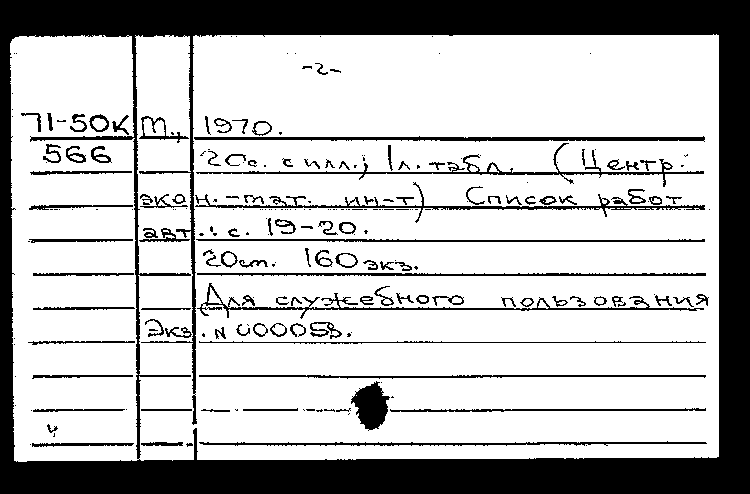 -2-
71-50к М., 1970.
566 20с. с илл.; 1л. табл. (Центр.
экон.-мат. ин-т) Список работ
авт.: с. 19-20.
20см. 160 экз.
Для служебного пользования
Экз. № 000058.
ч